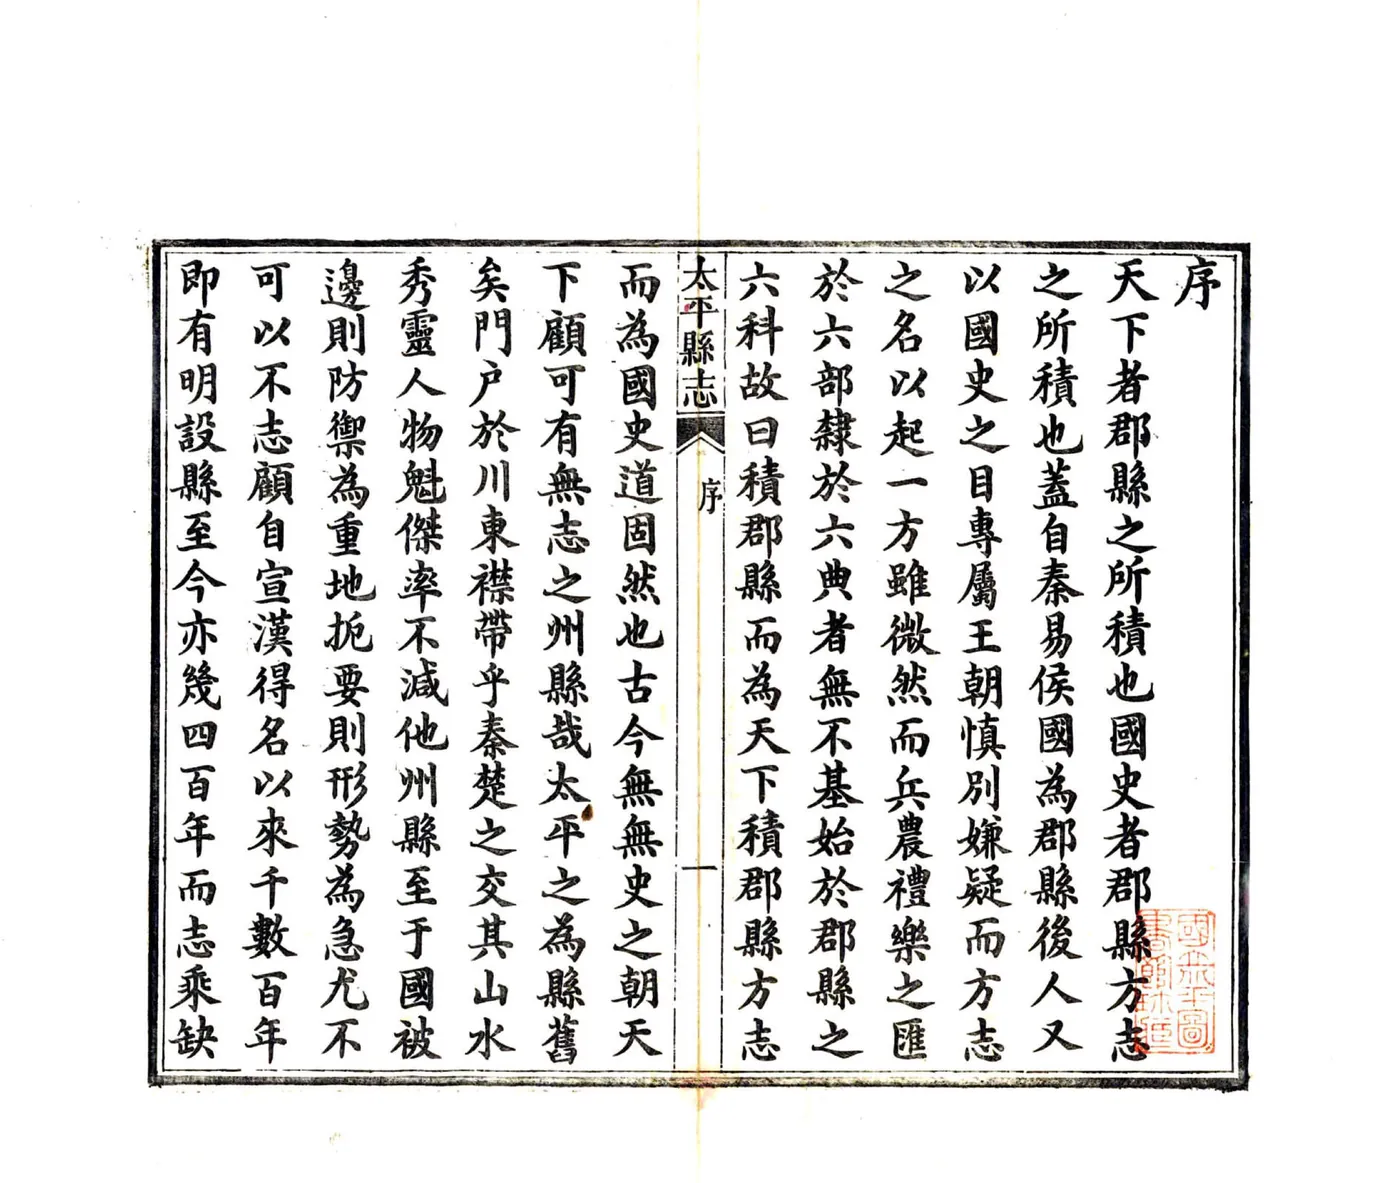 序
天下者郡縣之所積也國史者郡縣方志
之所積也蓋自秦易侯國為郡縣後人又
以國史之目專屬王朝慎別嫌疑而方志
之名以起一方雖微然而兵農禮樂之匯
於六部隸於六典者無不基始於郡縣之
六科故曰積郡縣而為天下積郡縣方志
太平縣志
序
一
而為國史道固然也古今無無史之朝天
下顧可有無志之州縣哉太平之為縣舊
矣門户於川東襟帶乎秦楚之交其山水
秀靈人物魁傑率不減他州縣至于國被
邊則防禦為重地扼要則形勢為急尤不
可以不志顧自宣漢得名以來千數百年
即有明設縣至今亦幾四百年而志乘缺